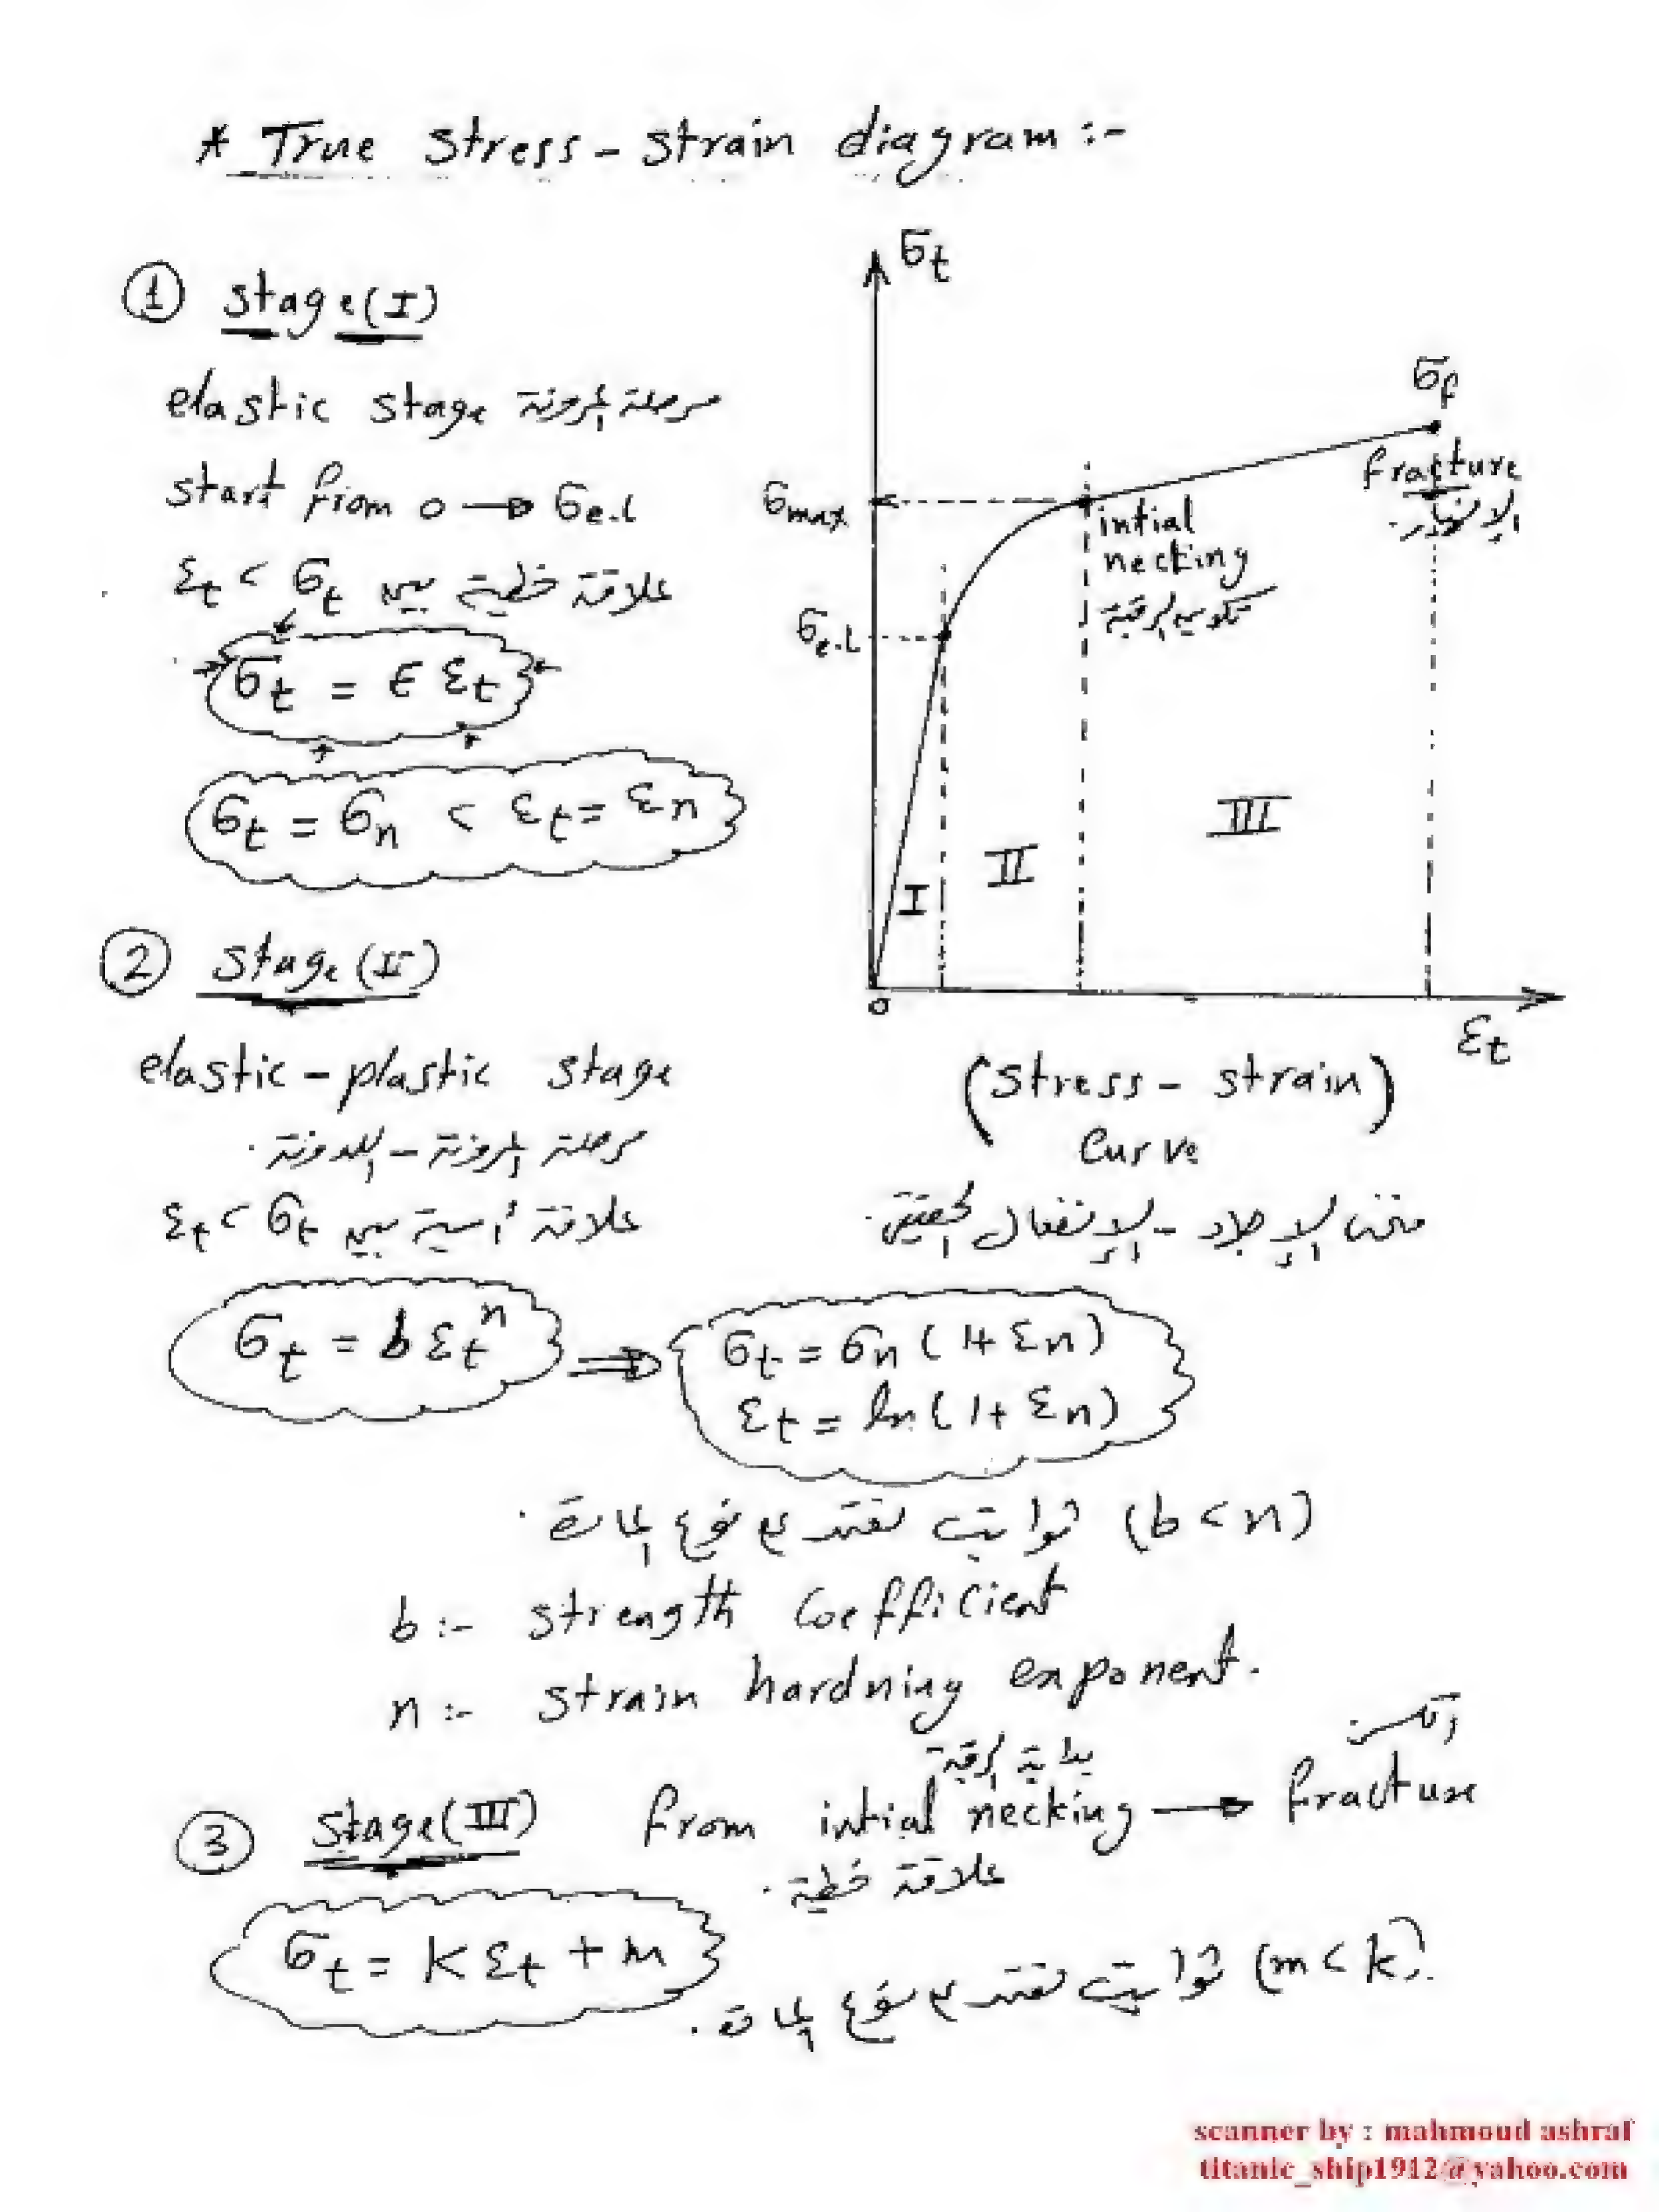 * True stress - strain diagram :-
① stage (I)
elastic stage مرحلة المرونة
start from 0 → σe.l
علاقة خطية بين σt ، εt
σt = E εt
σt = σn ، εt = εn
σt
σf
fracture
الإنهيار.
σmax
intial
necking
تكوين الرقبة
σe.l
I
II
III
0
εt
(stress - strain)
Curve
منحنى الإجهاد - الإنفعال الحقيقي.
② stage (II)
elastic - plastic stage
مرحلة المرونة - اللدونة.
علاقة أسية بين σt ، εt
σt = b εt^n ⇒ σt = σn (1+ εn)
εt = ln (1+ εn)
(b ، n) ثوابت تعتمد على نوع المادة.
b :- strength Coefficient
n :- strain hardning exponent.
بداية الرقبة
الكسر
③ stage (III) from intial necking → fracture
علاقة خطية.
σt = K εt + m
(m ، k) ثوابت تعتمد على نوع المادة.
scanner by : mahmoud ashraf
titanic_ship1912@yahoo.com